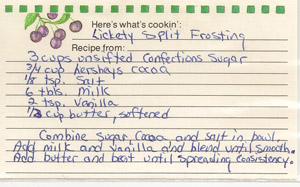 Here's what's cookin':
Lickety Split Frosting
Recipe from:
3 cups unsifted Confections Sugar
3/4 cup hersheys cocoa
1/8 tsp. Salt
6 tbls. Milk
2 tsp. Vanilla
1/3 cup butter, softened
Combine Sugar, Cocoa, and salt in bowl.
Add milk and vanilla and blend until smooth.
Add butter and beat until spreading consistency.